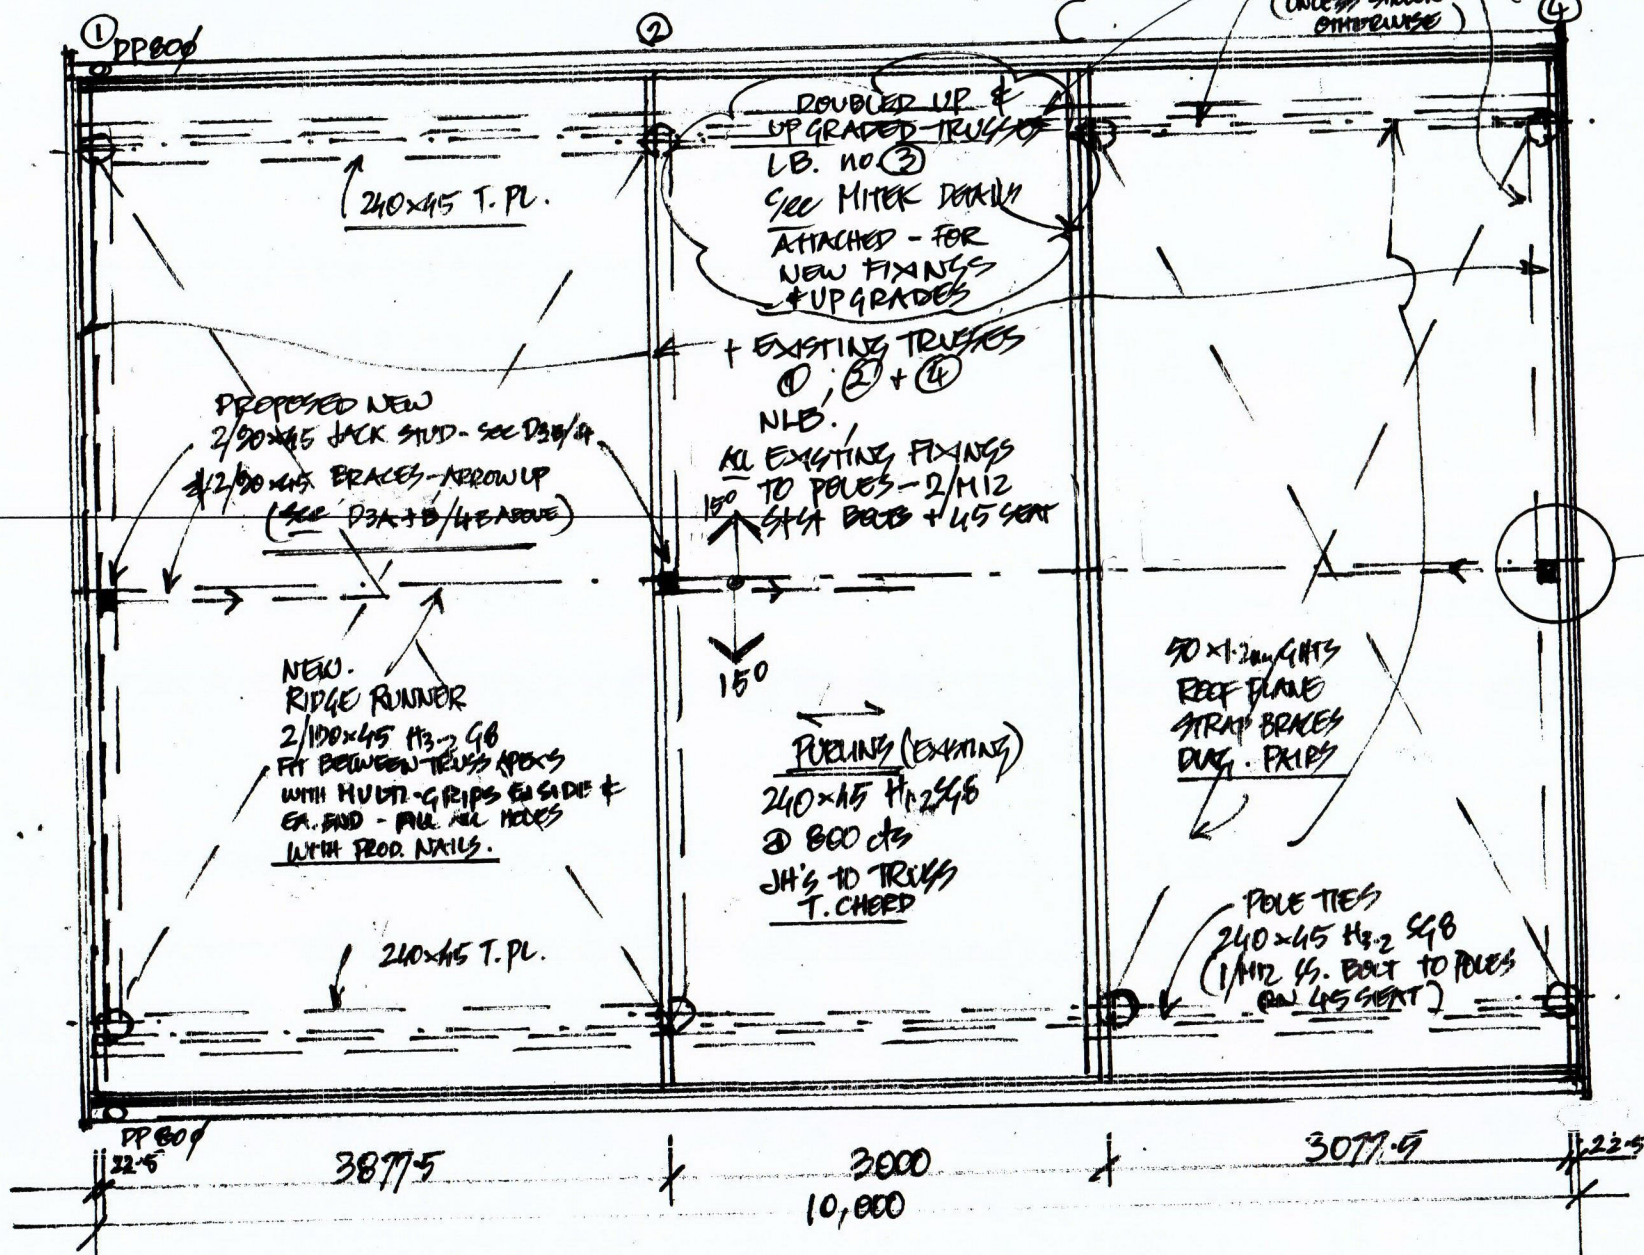 ①
DP80ϕ
②
(UNLESS
OTHERWISE)
④
DOUBLED UP &
UPGRADED TRUSSES
LB. no. ③
See MITEK DETAILS
ATTACHED - FOR
NEW FIXINGS
& UPGRADES
240x45 T. PL.
+ EXISTING TRUSSES
①; ② + ④
NLB.
ALL EXISTING FIXINGS
TO POLES - 2/M12
St St BOLTS + 45 SEAT
PROPOSED NEW
2/90x45 JACK STUD - SEE D3B/4
& 2/90x45 BRACES - ARROW UP
(SEE D3A + B/4B ABOVE)
15°
15°
NEW.
RIDGE RUNNER
2/190x45 H3.2 G8
FIT BETWEEN TRUSS APEXS
WITH MULTI-GRIPS EA SIDE &
EA. END - FILL ALL HOLES
WITH PROD. NAILS.
PURLINS (EXISTING)
240x45 H1.2 SG8
@ 800 cts
JH's TO TRUSS
T. CHORD
50x1.2mm
ROOF PLANE
STRAP BRACES
DIAG. PAIRS
240x45 T. PL.
POLE TIES
240x45 H3.2 SG8
(1/M12 SS. BOLT TO POLES
ON 45 SEAT)
DP 80ϕ
22.5
3877.5
3000
3077.5
22.5
10,000